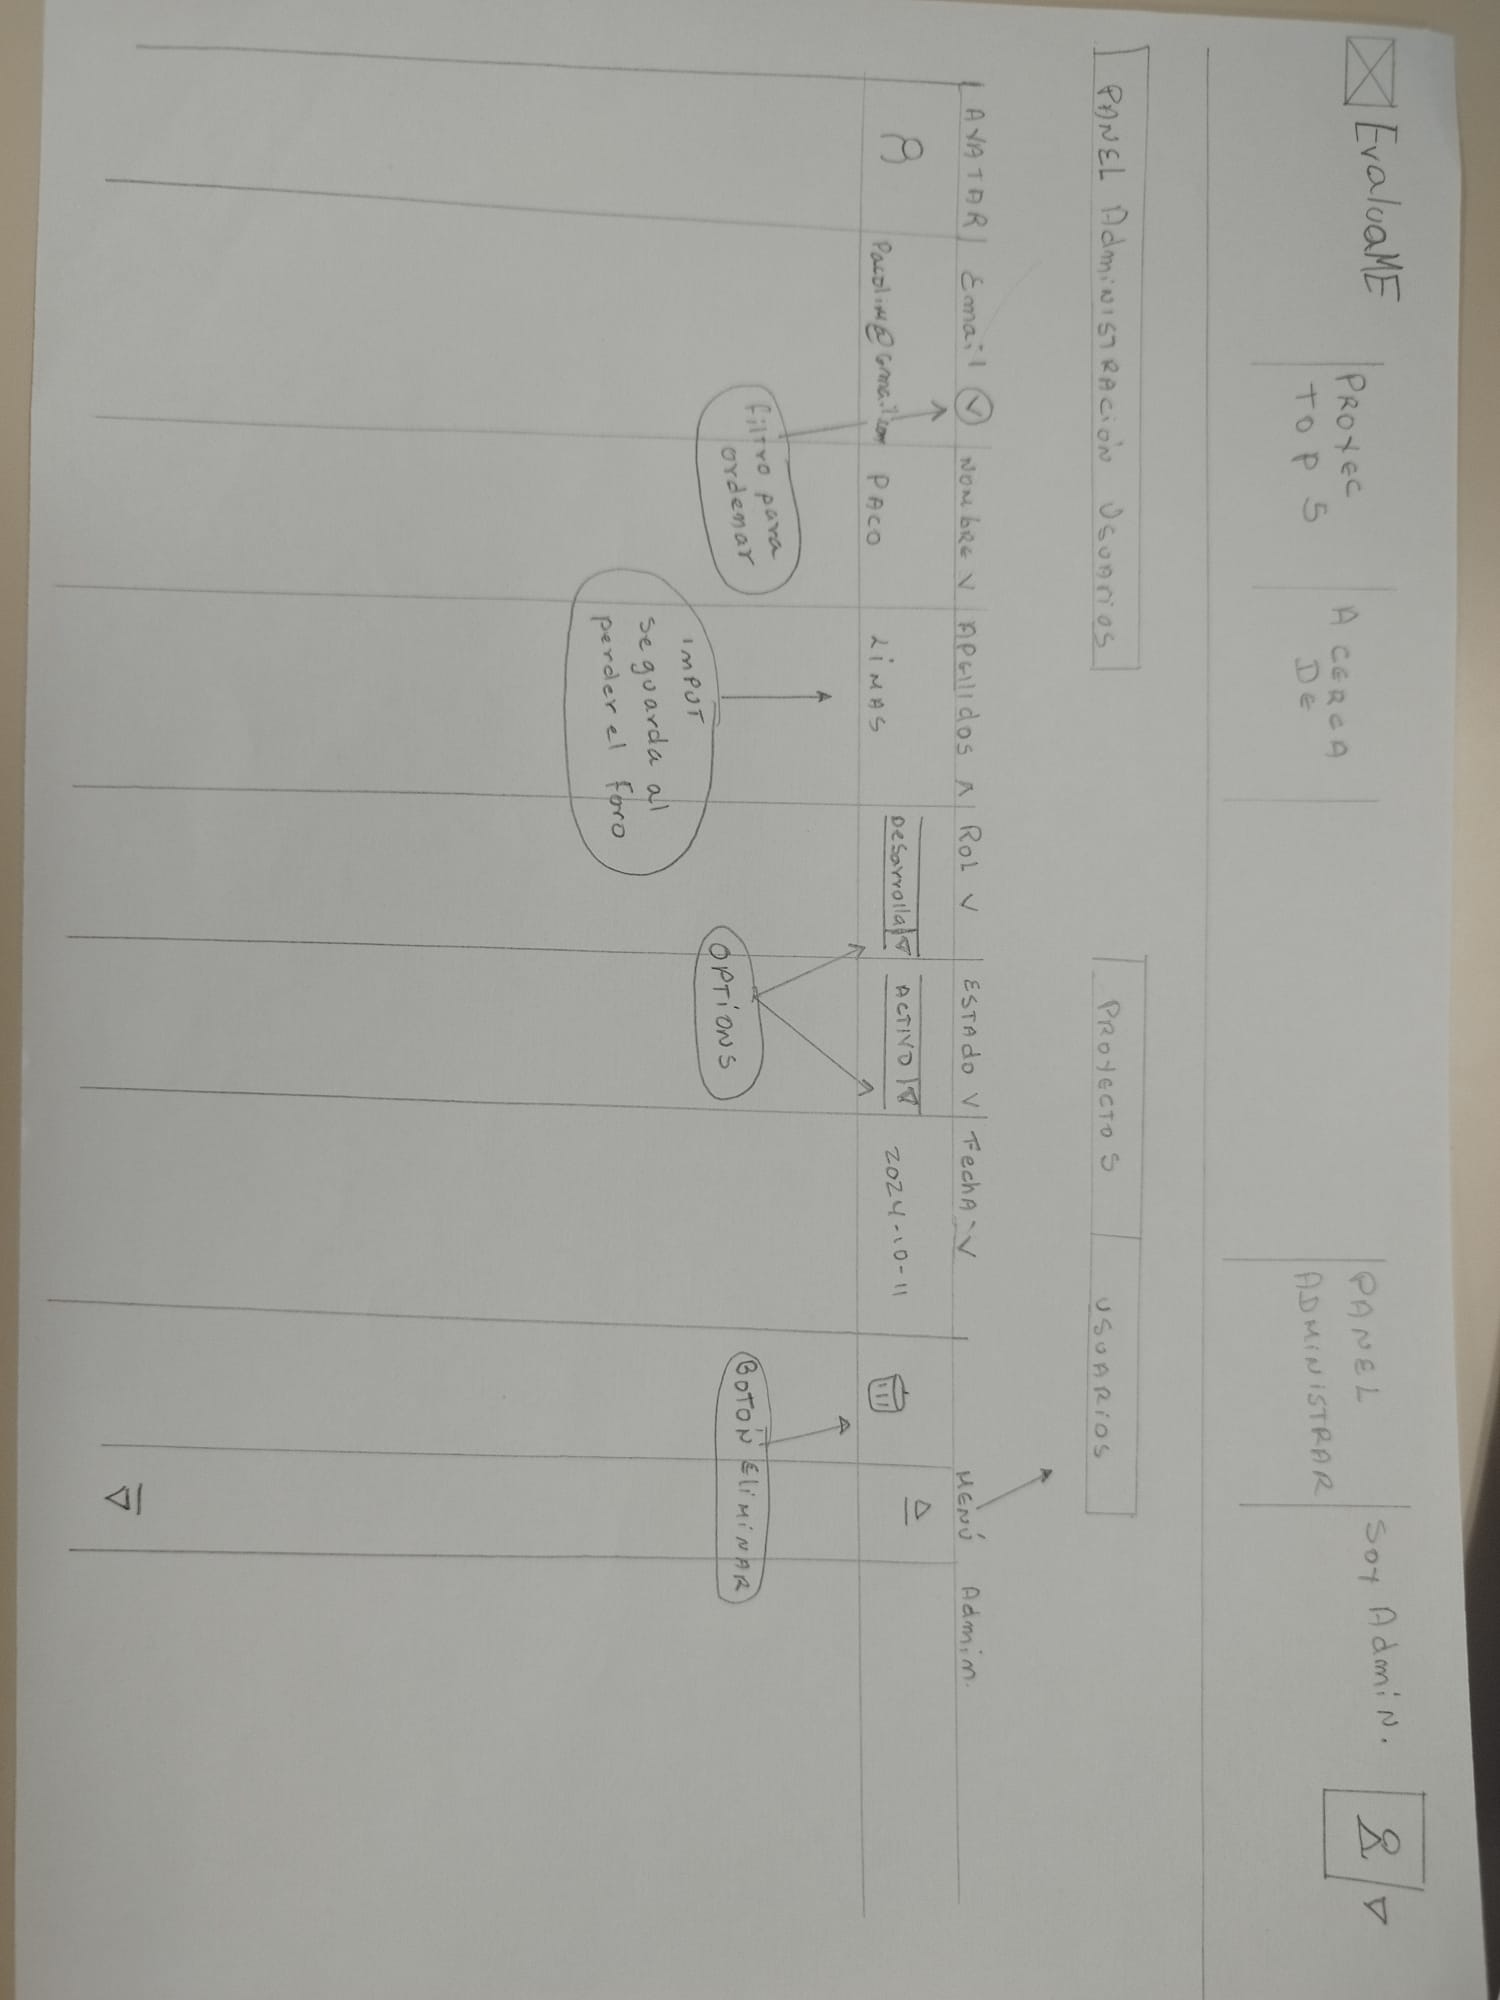 EvaluaME
PROYEC
TOP 5
ACERCA
DE
PANEL
ADMINISTRAR
Soy Admin.
PANEL Administración Usuarios
PROYECTOS
USUARIOS
AVATAR
Email
NOMBRE
APEllidos
Rol
ESTAdo
FechA
MENÚ Admin.
Pacolim@Gmail.com
PACO
LiMAS
Desarrolla
ACTIVO
2024-10-11
filtro para
ordenar
imPUT
se guarda al
perder el Foro
OPTIONS
BOTÓN EliMiNAR